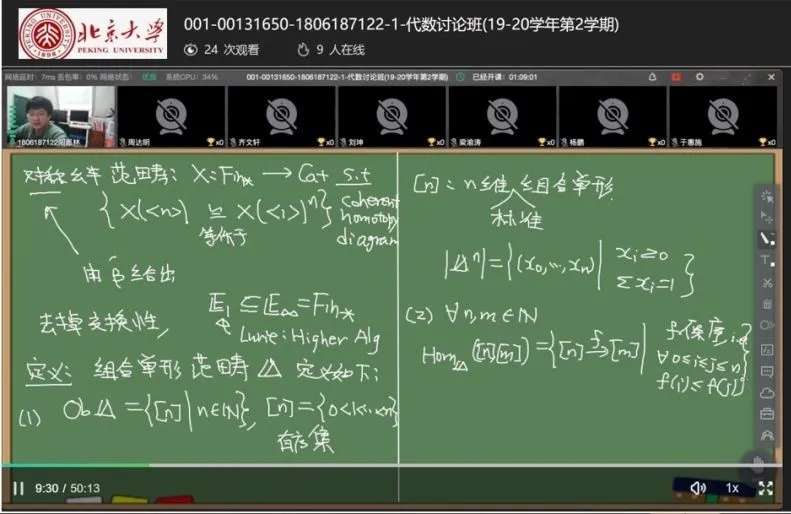 北京大学
PEKING UNIVERSITY
1898
001-00131650-1806187122-1-代数讨论班(19-20学年第2学期)
24 次观看
9 人在线
网络延时: 7ms 丢包率: 0% 网络状态: 优良 系统CPU: 34%
001-00131650-1806187122-1-代数讨论班(19-20学年第2学期)
已经开课: 01:09:01
1806187122阳嘉林
周达明 x0
齐文轩 x0
刘坤 x0
梁渝涛 x0
杨鹏 x0
于惠施 x0
对称幺半范畴: X: Fin* → Cat s.t
{ X(<n>) ≅ X(<1>)^n }
等价于
coherent
homotopy
diagram
由 β 给出
去掉交换性,
E₁ ⊆ E∞ = Fin*
Lurie: Higher Alg
定义: 组合单形范畴 Δ 定义如下:
(1) Ob Δ = {[n] | n∈ℕ}, [n] = {0<1<..<n}
有序集
[n]: n维 组合单形
标准
|Δ^n| = {(x₀,…,xₙ) | xᵢ≥0
Σxᵢ=1}
(2) ∀n,m∈ℕ
Hom_Δ([n],[m]) = {[n] →f [m] | f保序, i.e
∀0≤i≤j≤n
f(i)≤f(j)}
9:30 / 50:13
1x